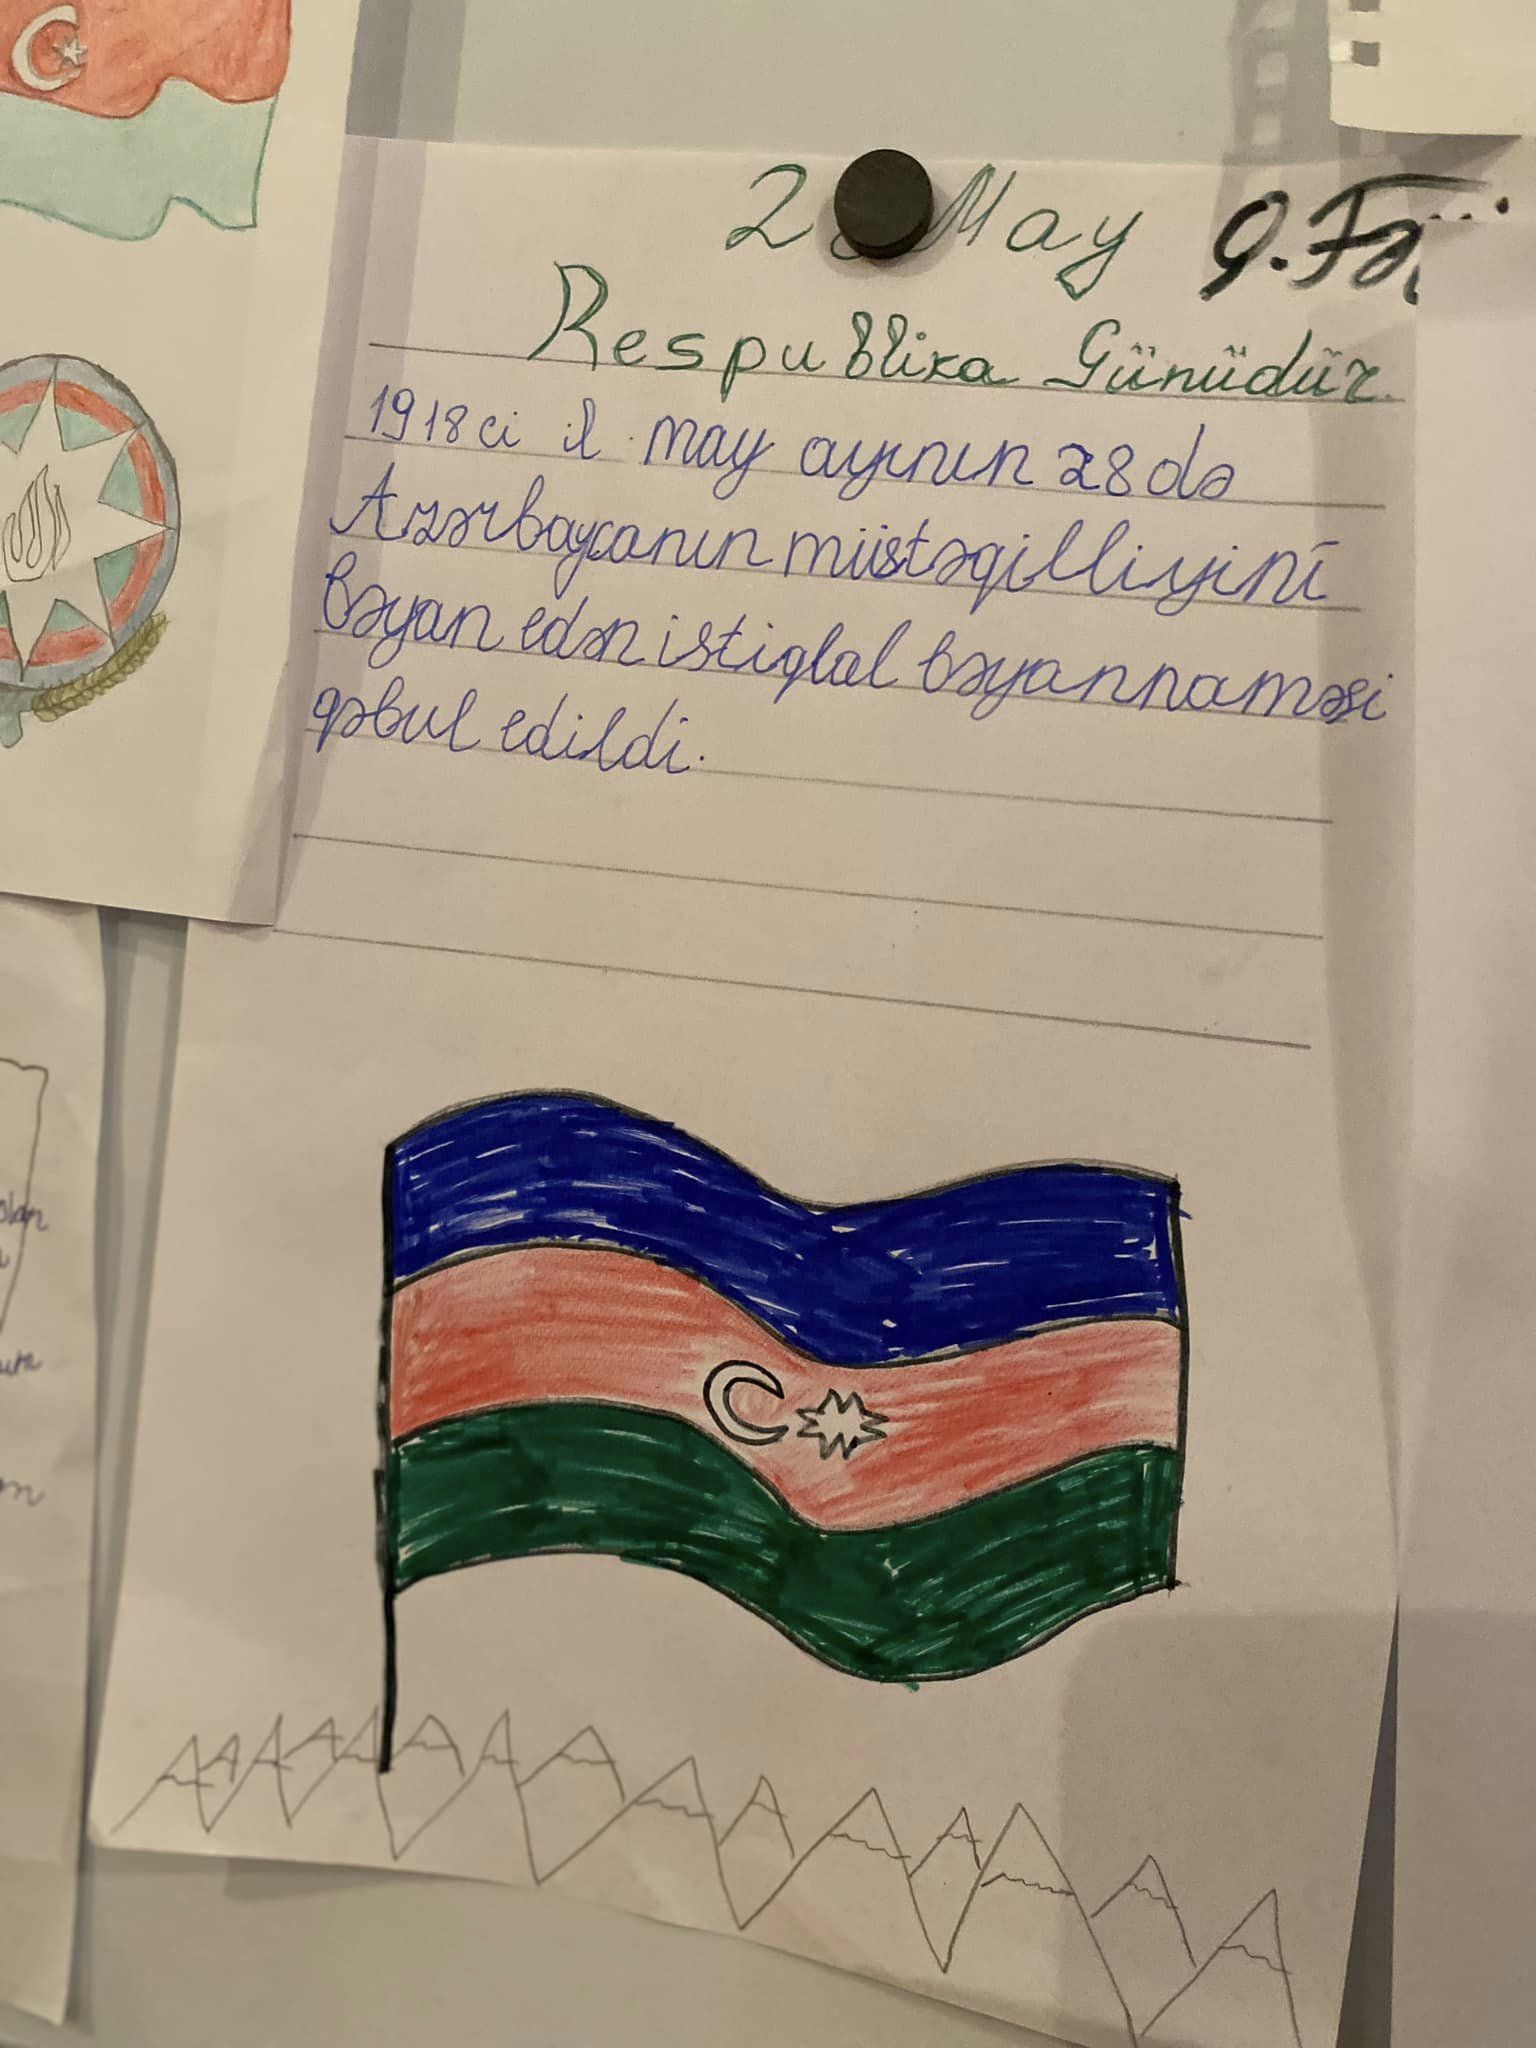 2 May
Respublika Günüdür.
1918 ci il may ayının 28 də
Azərbaycanın müstəqilliyini
bəyan edən istiqlal bəyannaməsi
qəbul edildi.